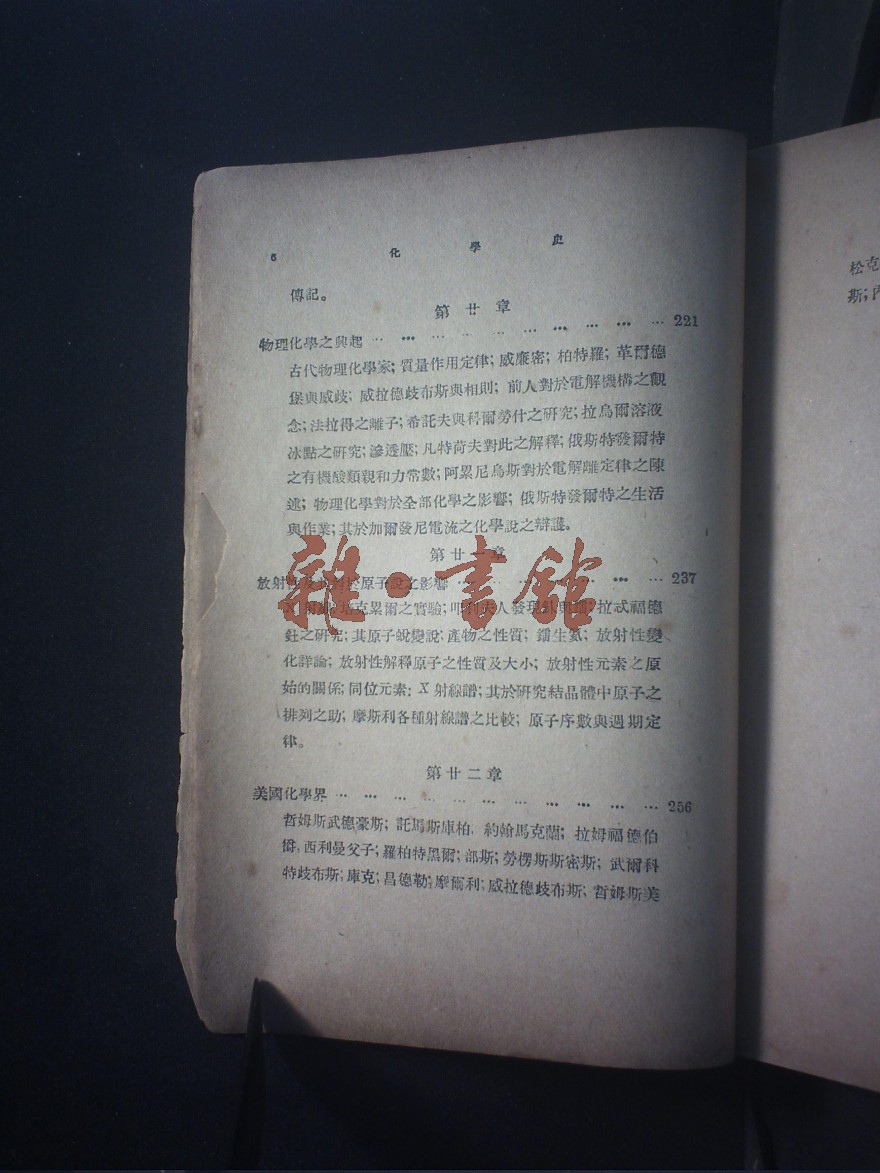 6 化學史
傳記。
第廿章
物理化學之興起 … … … … … … … … … … 221
古代物理化學家; 質量作用定律; 威廉密; 柏特羅; 革爾德
堡與威歧; 威拉德歧布斯與相則; 前人對於電解機構之觀
念; 法拉得之離子; 希託夫與科爾勞什之研究; 拉烏爾溶液
冰點之研究; 滲透壓; 凡特荷夫對此之解釋; 俄斯特發爾特
之有機酸類親和力常數; 阿累尼烏斯對於電解離定律之陳
述; 物理化學對於全部化學之影響; 俄斯特發爾特之生活
與作業; 其於加爾發尼電流之化學說之辯護。
第廿一章
放射性及其對於原子說之影響 … … … … … … … 237
X 射線; 培克累爾之實驗; 夫人發現; 拉忒福德
釷之研究; 其原子蛻變說; 產物之性質; 鐳生氦; 放射性變
化詳論; 放射性解釋原子之性質及大小; 放射性元素之原
始的關係; 同位元素; X 射線譜; 其於研究結晶體中原子之
排列之助; 摩斯利各種射線譜之比較; 原子序數與週期定
律。
第廿二章
美國化學界 … … … … … … … … … … … 256
哲姆斯武德豪斯; 託馬斯庫柏, 約翰馬克蘭; 拉姆福德伯
爵, 西利曼父子; 羅柏特黑爾; 部斯; 勞楞斯斯密斯; 武爾科
特歧布斯; 庫克; 昌德勒; 摩爾利; 威拉德歧布斯、哲姆斯美
松克
斯;
雜·書館